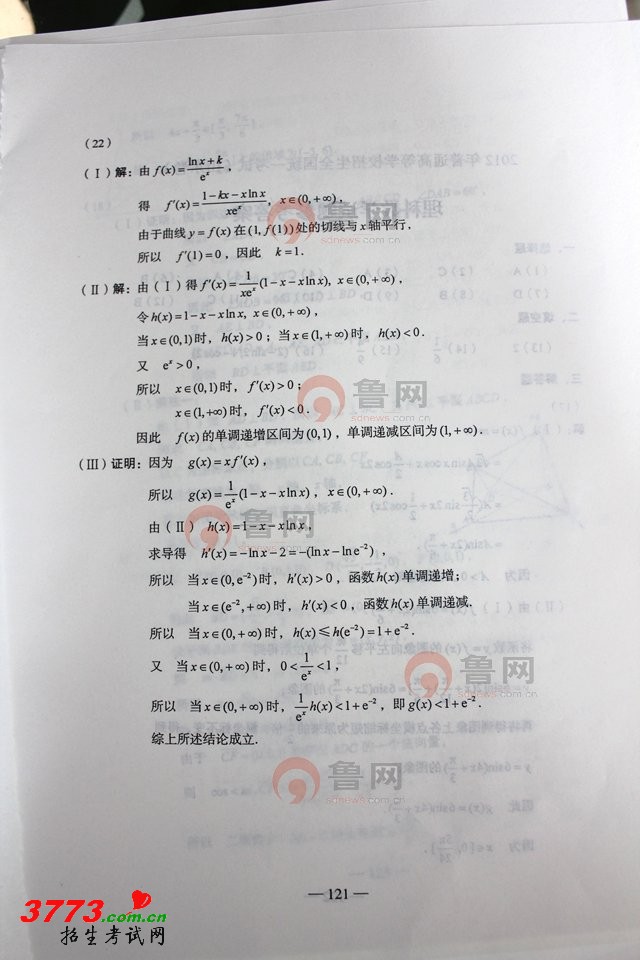 (22)
(Ⅰ)解：由 f(x)=(ln x+k)/e^x，
得 f′(x)=(1-kx-xln x)/(xe^x)，x∈(0,+∞)，
由于曲线 y=f(x) 在(1,f(1))处的切线与 x 轴平行．
所以 f′(1)=0，因此 k=1．
(Ⅱ)解：由(Ⅰ)得 f′(x)=1/(xe^x)(1-x-xln x)，x∈(0,+∞)，
令 h(x)=1-x-xln x，x∈(0,+∞)，
当 x∈(0,1)时，h(x)>0；当 x∈(1,+∞)时，h(x)<0．
又 e^x>0，
所以 x∈(0,1)时，f′(x)>0；
x∈(1,+∞)时，f′(x)<0．
因此 f(x)的单调递增区间为(0,1)，单调递减区间为(1,+∞)．
(Ⅲ)证明：因为 g(x)=xf′(x)，
所以 g(x)=1/e^x(1-x-xln x)，x∈(0,+∞)．
由(Ⅱ) h(x)=1-x-xln x，
求导得 h′(x)=-ln x-2=-(ln x-ln e^-2)，
所以 当 x∈(0,e^-2)时，h′(x)>0，函数 h(x)单调递增；
当 x∈(e^-2,+∞)时，h′(x)<0，函数 h(x)单调递减．
所以 当 x∈(0,+∞)时，h(x)≤h(e^-2)=1+e^-2．
又 当 x∈(0,+∞)时，0<1/e^x<1，
所以 当 x∈(0,+∞)时，1/e^x h(x)<1+e^-2，即 g(x)<1+e^-2．
综上所述结论成立．
— 121 —
鲁网
sdnews.com.cn
鲁网
sdnews.com.cn
鲁网
sdnews.com.cn
鲁网
sdnews.com.cn
鲁网
sdnews.com.cn
3773.com.cn
招生考试网